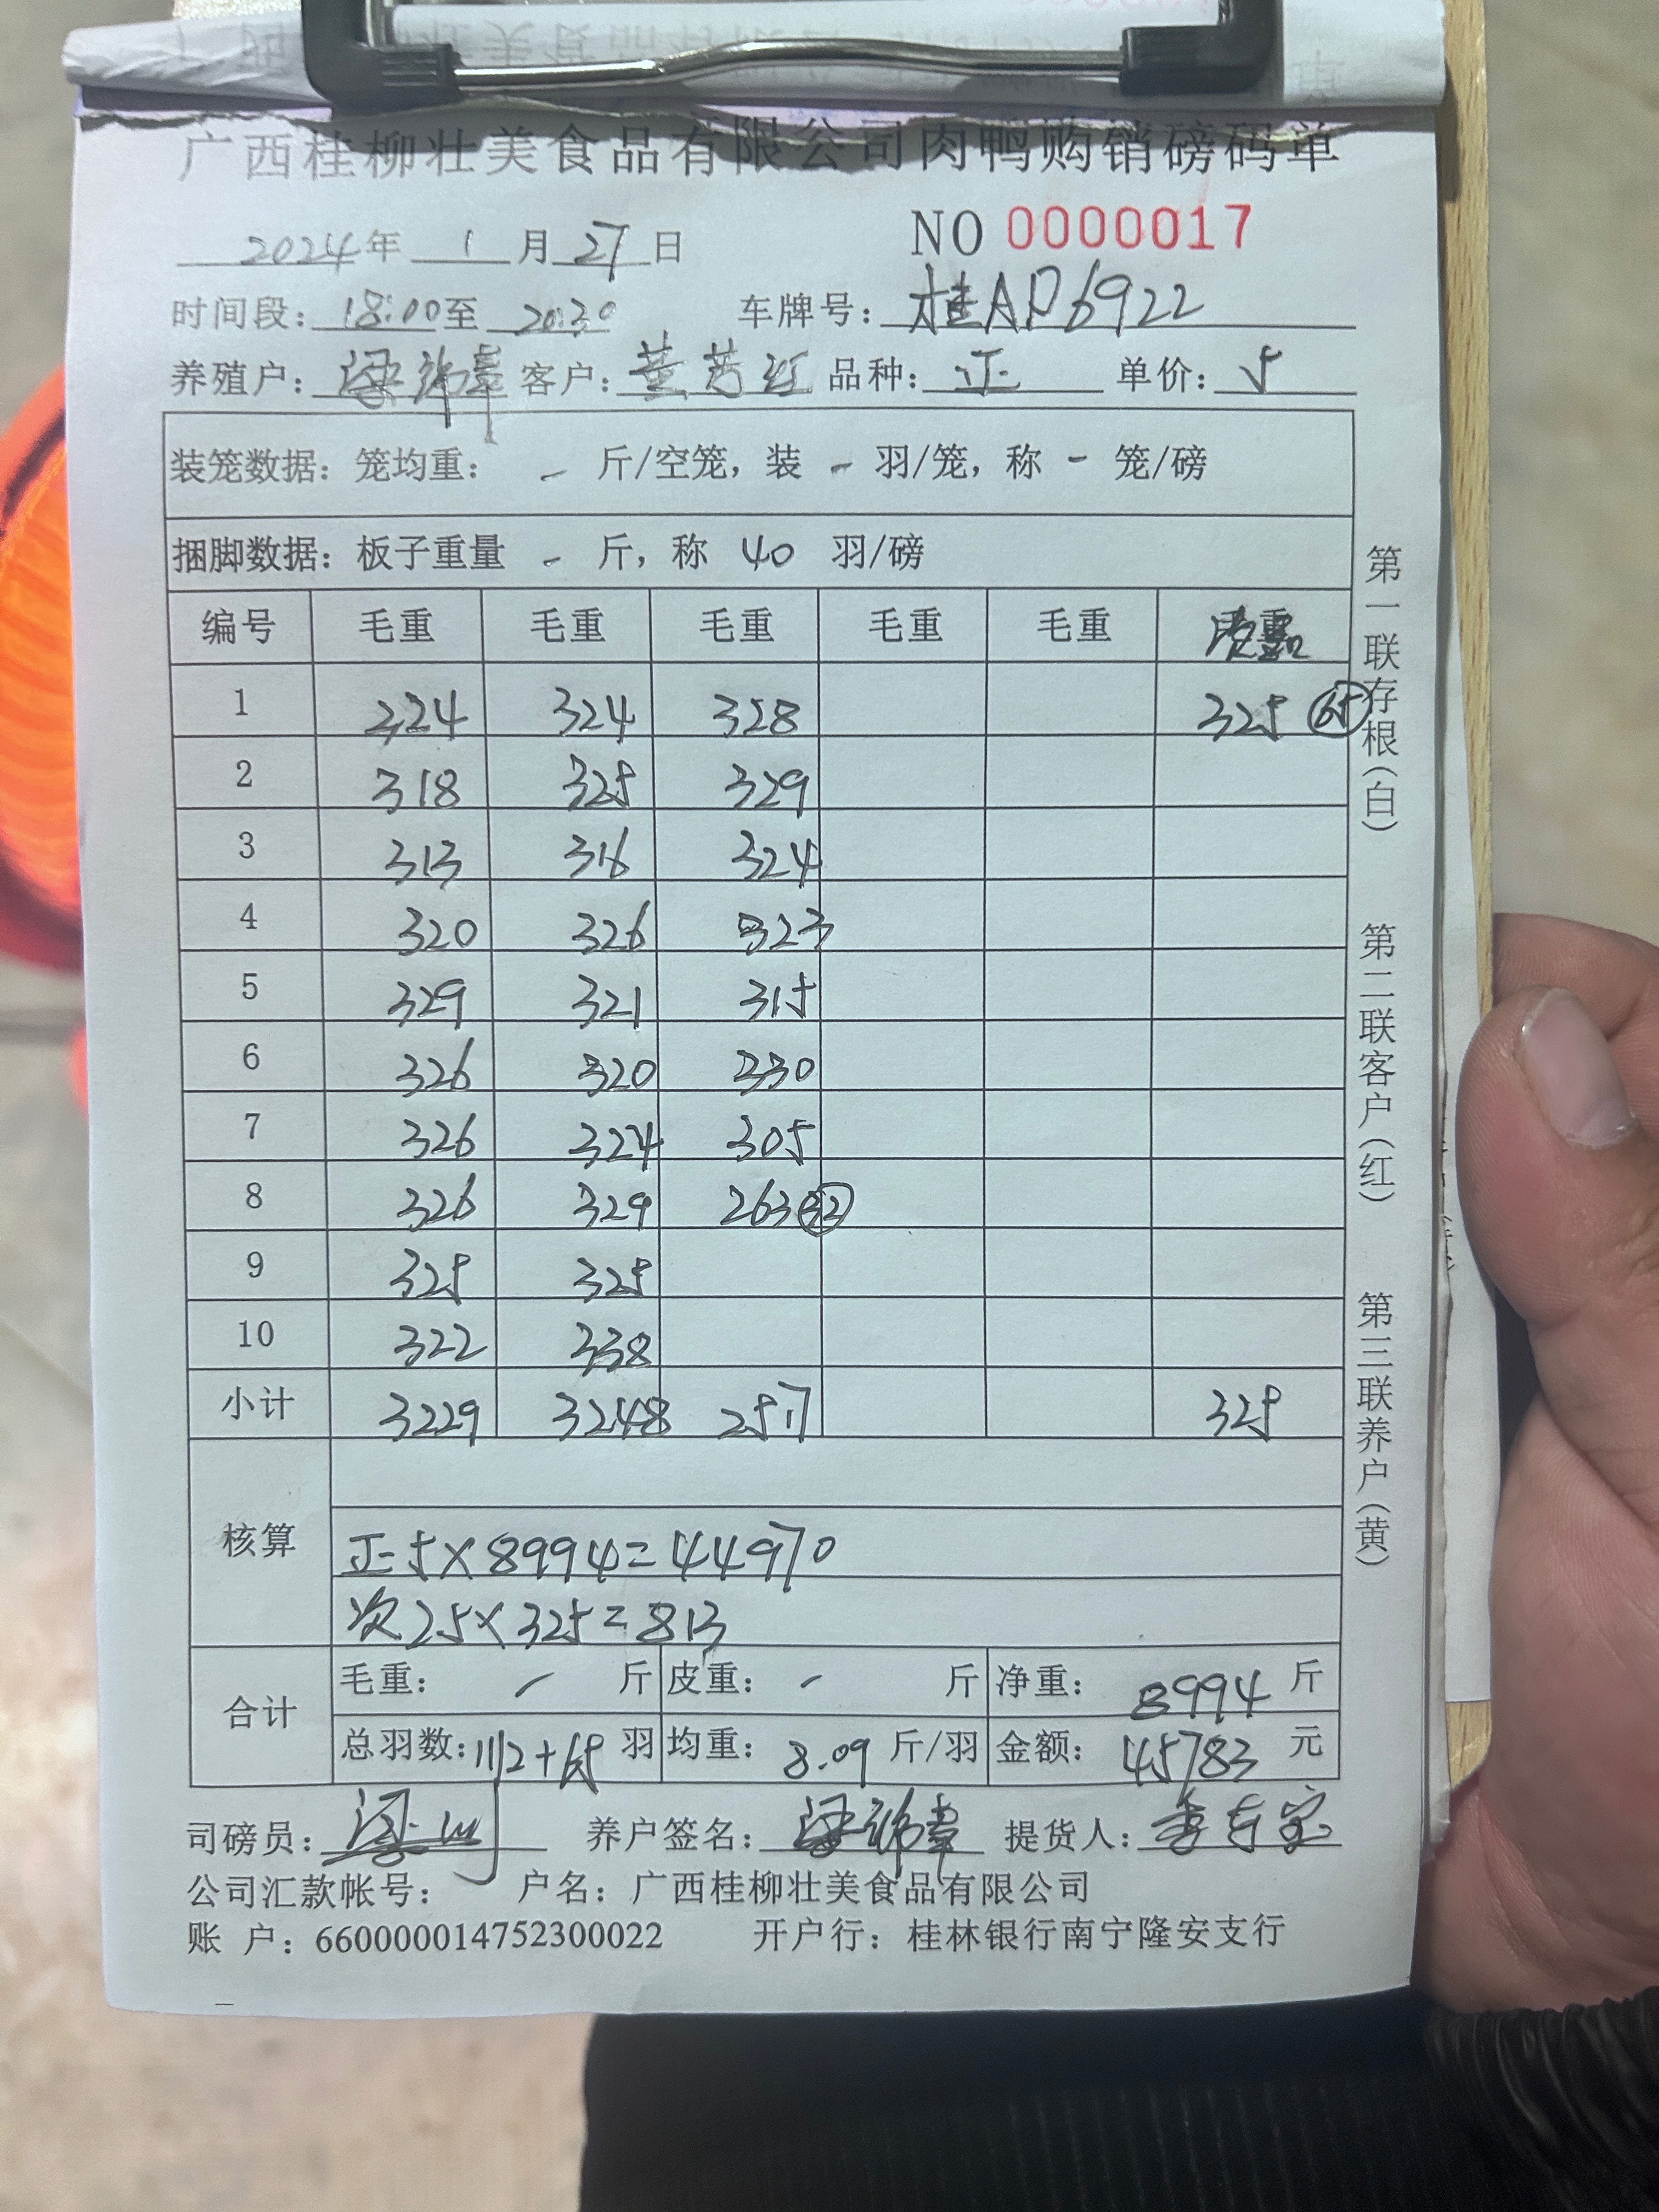 广西桂柳壮美食品有限公司肉鸭购销磅码单
NO 0000017
2024年 1 月 27 日
时间段: 18:00至 20:30 车牌号: 桂AP6922
养殖户: 客户: 黄芳红 品种: 正 单价: 5
装笼数据: 笼均重: - 斤/空笼, 装 - 羽/笼, 称 - 笼/磅
捆脚数据: 板子重量 - 斤, 称 40 羽/磅
编号 毛重 毛重 毛重 毛重 毛重
1 324 324 328 325 65
2 318 325 329
3 313 316 324
4 320 326 323
5 329 321 315
6 326 320 330
7 326 324 305
8 326 329 263 32
9 325 325
10 322 338
小计 3229 3248 2517 325
核算
正5×8994=44970
次25×325=813
合计
毛重: - 斤 皮重: - 斤 净重: 8994 斤
总羽数: 1112+65 羽 均重: 8.09 斤/羽 金额: 45783 元
司磅员: 养户签名: 提货人:
公司汇款帐号: 户名: 广西桂柳壮美食品有限公司
账 户: 660000014752300022 开户行: 桂林银行南宁隆安支行
第一联存根(白)
第二联客户(红)
第三联养户(黄)